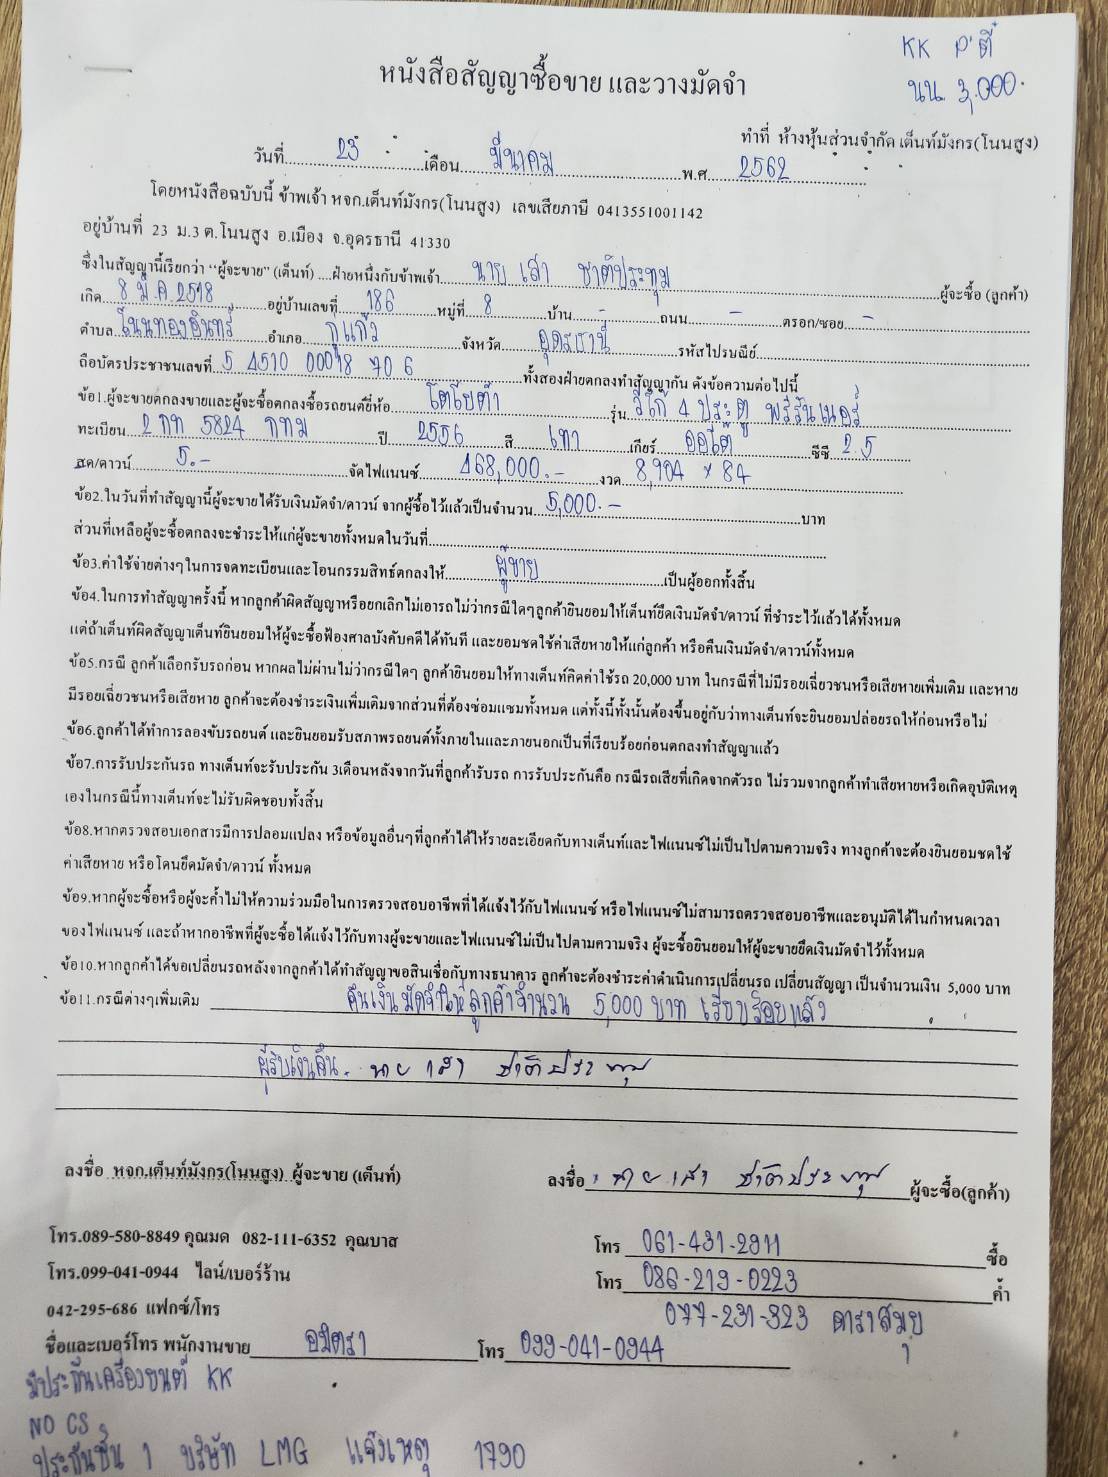 KK P'ตี๋
นน. 3,000.
หนังสือสัญญาซื้อขาย และวางมัดจำ
ทำที่ ห้างหุ้นส่วนจำกัด เต็นท์มังกร(โนนสูง)
วันที่ 23 เดือน มีนาคม พ.ศ 2562
โดยหนังสือฉบับนี้ ข้าพเจ้า หจก.เต็นท์มังกร(โนนสูง) เลขเสียภาษี 0413551001142
อยู่บ้านที่ 23 ม.3 ต.โนนสูง อ.เมือง จ.อุดรธานี 41330
ซึ่งในสัญญานี้เรียกว่า "ผู้จะขาย" (เต็นท์) ....ฝ่ายหนึ่งกับข้าพเจ้า นาย เสา ชาติประทุม ผู้จะซื้อ (ลูกค้า)
เกิด 8 มี.ค. 2518 อยู่บ้านเลขที่ 186 หมู่ที่ 8 บ้าน - ถนน - ตรอก/ซอย -
ตำบล โนนทองอินทร์ อำเภอ กู่แก้ว จังหวัด อุดรธานี รหัสไปรษณีย์
ถือบัตรประชาชนเลขที่ 5 4510 00018 70 6 ทั้งสองฝ่ายตกลงทำสัญญากัน ดังข้อความต่อไปนี้
ข้อ1.ผู้จะขายตกลงขายและผู้จะซื้อตกลงซื้อรถยนต์ยี่ห้อ โตโยต้า รุ่น วีโก้ 4 ประตู พรีรันเนอร์
ทะเบียน 2 กท 5824 กทม ปี 2556 สี เทา เกียร์ ออโต้ ซีซี 2.5
สด/ดาวน์ 5.- จัดไฟแนนซ์ 468,000.- งวด 8,904 x 84
ข้อ2.ในวันที่ทำสัญญานี้ผู้จะขายได้รับเงินมัดจำ/ดาวน์ จากผู้ซื้อไว้แล้วเป็นจำนวน 5,000.- บาท
ส่วนที่เหลือผู้จะซื้อตกลงจะชำระให้แก่ผู้จะขายทั้งหมดในวันที่
ข้อ3.ค่าใช้จ่ายต่างๆในการจดทะเบียนและโอนกรรมสิทธ์ตกลงให้ ผู้ขาย เป็นผู้ออกทั้งสิ้น
ข้อ4.ในการทำสัญญาครั้งนี้ หากลูกค้าผิดสัญญาหรือยกเลิกไม่เอารถไม่ว่ากรณีใดๆลูกค้ายินยอมให้เต็นท์ยึดเงินมัดจำ/ดาวน์ ที่ชำระไว้แล้วได้ทั้งหมด
แต่ถ้าเต็นท์ผิดสัญญาเต็นท์ยินยอมให้ผู้จะซื้อฟ้องศาลบังคับคดีได้ทันที และยอมชดใช้ค่าเสียหายให้แก่ลูกค้า หรือคืนเงินมัดจำ/ดาวน์ทั้งหมด
ข้อ5.กรณี ลูกค้าเลือกรับรถก่อน หากผลไม่ผ่านไม่ว่ากรณีใดๆ ลูกค้ายินยอมให้ทางเต็นท์คิดค่าใช้รถ 20,000 บาท ในกรณีที่ไม่มีรอยเฉี่ยวชนหรือเสียหายเพิ่มเติม และหาย
มีรอยเฉี่ยวชนหรือเสียหาย ลูกค้าจะต้องชำระเงินเพิ่มเติมจากส่วนที่ต้องซ่อมแซมทั้งหมด แต่ทั้งนี้ทั้งนั้นต้องขึ้นอยู่กับว่าทางเต็นท์จะยินยอมปล่อยรถให้ก่อนหรือไม่
ข้อ6.ลูกค้าได้ทำการลองขับรถยนต์ และยินยอมรับสภาพรถยนต์ทั้งภายในและภายนอกเป็นที่เรียบร้อยก่อนตกลงทำสัญญาแล้ว
ข้อ7.การรับประกันรถ ทางเต็นท์จะรับประกัน 3เดือนหลังจากวันที่ลูกค้ารับรถ การรับประกันคือ กรณีรถเสียที่เกิดจากตัวรถ ไม่รวมจากลูกค้าทำเสียหายหรือเกิดอุบัติเหตุ
เองในกรณีนี้ทางเต็นท์จะไม่รับผิดชอบทั้งสิ้น
ข้อ8.หากตรวจสอบเอกสารมีการปลอมแปลง หรือข้อมูลอื่นๆที่ลูกค้าได้ให้รายละเอียดกับทางเต็นท์และไฟแนนซ์ไม่เป็นไปตามความจริง ทางลูกค้าจะต้องยินยอมชดใช้
ค่าเสียหาย หรือโดนยึดมัดจำ/ดาวน์ ทั้งหมด
ข้อ9.หากผู้จะซื้อหรือผู้จะค้ำไม่ให้ความร่วมมือในการตรวจสอบอาชีพที่ได้แจ้งไว้กับไฟแนนซ์ หรือไฟแนนซ์ไม่สามารถตรวจสอบอาชีพและอนุมัติได้ในกำหนดเวลา
ของไฟแนนซ์ และถ้าหากอาชีพที่ผู้จะซื้อได้แจ้งไว้กับทางผู้จะขายและไฟแนนซ์ไม่เป็นไปตามความจริง ผู้จะซื้อยินยอมให้ผู้จะขายยึดเงินมัดจำไว้ทั้งหมด
ข้อ10.หากลูกค้าได้ขอเปลี่ยนรถหลังจากลูกค้าได้ทำสัญญาขอสินเชื่อกับทางธนาคาร ลูกค้าจะต้องชำระค่าดำเนินการเปลี่ยนรถ เปลี่ยนสัญญา เป็นจำนวนเงิน 5,000 บาท
ข้อ11.กรณีต่างๆเพิ่มเติม คืนเงินมัดจำให้ลูกค้าจำนวน 5,000 บาท เรียบร้อยแล้ว
ผู้รับเงินคืน. นาย เสา ชาติประทุม
ลงชื่อ หจก.เต็นท์มังกร(โนนสูง) ผู้จะขาย (เต็นท์) ลงชื่อ นาย เสา ชาติประทุม ผู้จะซื้อ(ลูกค้า)
โทร.089-580-8849 คุณมด 082-111-6352 คุณบาส โทร 061-431-2911 ซื้อ
โทร.099-041-0944 ไลน์/เบอร์ร้าน โทร 086-219-0223 ค้ำ
042-295-686 แฟกซ์/โทร 077-231-323 ดาราสมุย
ชื่อและเบอร์โทร พนักงานขาย อมิตรา โทร 099-041-0944
มีประกันเครื่องยนต์ KK
NO CS
ประกันชั้น 1 บริษัท LMG แจ้งเหตุ 1790